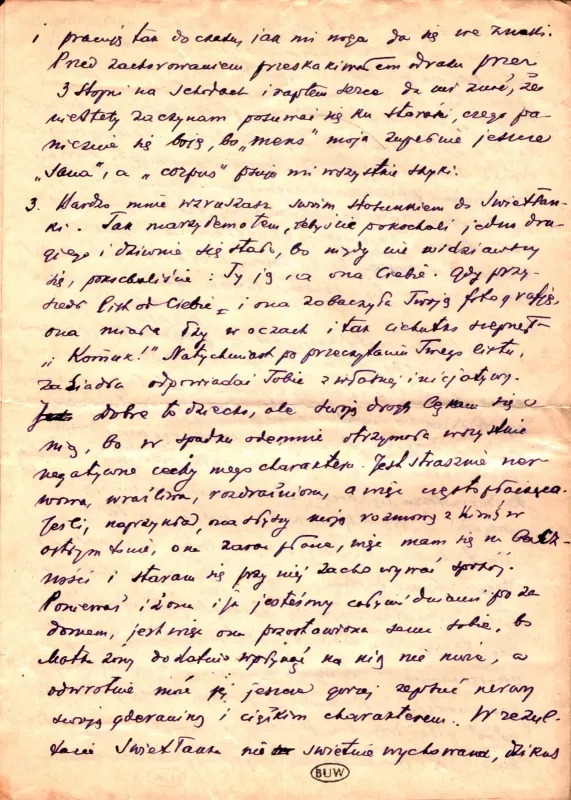 i pracuję tak do czasu, jak mi noga da się we znaki.
Przed zachorowaniem przeskakiwałem odrazu przez
3 stopni na schodach i raptem serce da mi znać, że
niestety zaczynam posuwać się ku starości, czego pa-
nicznie się boję, bo „mens" moja zupełnie jeszcze
„sana", a „corpus" psuje mi wszystkie szyki.
3. Bardzo mnie wzruszasz swoim stosunkiem do Swietłan-
ki. Tak marzyłem o tem, żebyście pokochali jedno dru-
giego i dziwnie się stało, bo nigdy nie widziawszy
się, pokochaliście: Ty ją, a ona Ciebie. Gdy przy-
szedł list od Ciebie, i ona zobaczyła Twoją fotografję,
ona miała łzy w oczach i tak cichutko szepnęła
„ ! " Natychmiast po przeczytaniu Twego listu,
zasiadła odpowiadać Tobie z własnej inicjatywy.
Dobre to dziecko, ale swoją drogą lękam się o
nią, bo w spadku odemnie otrzymała wszystkie
negatywne cechy mego charakteru. Jest strasznie ner-
wowa, wrażliwa, rozdrażniona, a więc często płacząca.
Jeśli, naprzykład, ona słyszy moją rozmowę z kimś w
ostrym tonie, ona zaraz płacze, więc mam się na bacz-
ności i staram się przy niej zachowywać spokój.
Ponieważ i żona i ja jesteśmy całymi dniami poza
domem, jest więc ona pozostawiona sama sobie, bo
matka żony dodatnio wpłynąć na nią nie może, a
odwrotnie może jej jeszcze gorzej zepsuć nerwy
swoją gderaniną i ciężkim charakterem. W rezul-
tacie Swietłanka nie świetnie wychowana, dzikus
BUW